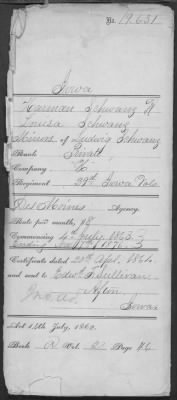 No. 19,631
Iowa
Harman Schwanz &
Louisa Schwanz
Minors of Ludwig Schwanz
Rank Private
Company
Regiment 29th Iowa Vols
Des Moines Agency.
Rate per month, $8
Commencing 4th July 1863
Ending
Certificate dated 20th Apr. 1864
and sent to Edw. Sullivan
Afton
Iowa
Act 14th July, 1862.
Book Vol. Page